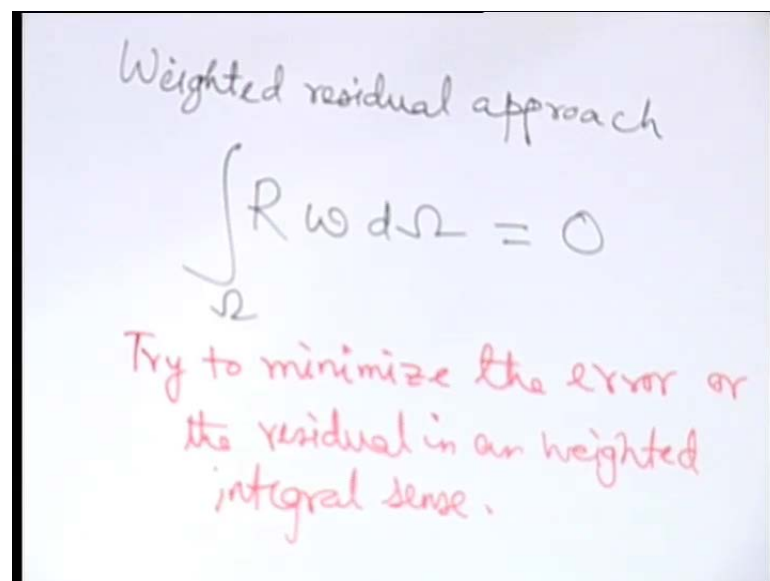 Weighted residual approach
∫_Ω R w dΩ = 0
Try to minimize the error or
the residual in an weighted
integral sense.